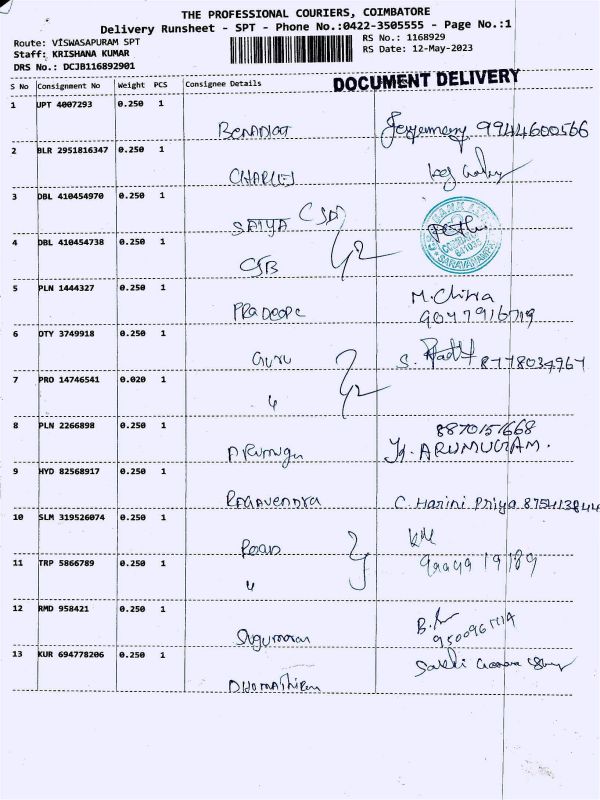 THE PROFESSIONAL COURIERS, COIMBATORE
Delivery Runsheet - SPT - Phone No.:0422-3505555 - Page No.:1
Route: VISWASAPURAM SPT
Staff: KRISHANA KUMAR
DRS No.: DCJB116892901
RS No.: 1168929
RS Date: 12-May-2023
S No Consignment No Weight PCS Consignee Details
DOCUMENT DELIVERY
1 UPT 4007293 0.250 1
9944600566
2 BLR 2951816347 0.250 1
CHARLES
3 DBL 410454970 0.250 1
SATYA CSB
4 DBL 410454738 0.250 1
CSB
5 PLN 1444327 0.250 1
PRadeepe M. Chitra
6 DTY 3749918 0.250 1
Guru S. 8778034967
7 PRO 14746541 0.020 1
"
8 PLN 2266898 0.250 1
8870151668
ARUMUGAM.
9 HYD 82568917 0.250 1
RAGAVENDRA C. Harini Priya 875413844
10 SLM 319526074 0.250 1
11 TRP 5866789 0.250 1
"
12 RMD 958421 0.250 1
Sugumaran
13 KUR 694778206 0.250 1